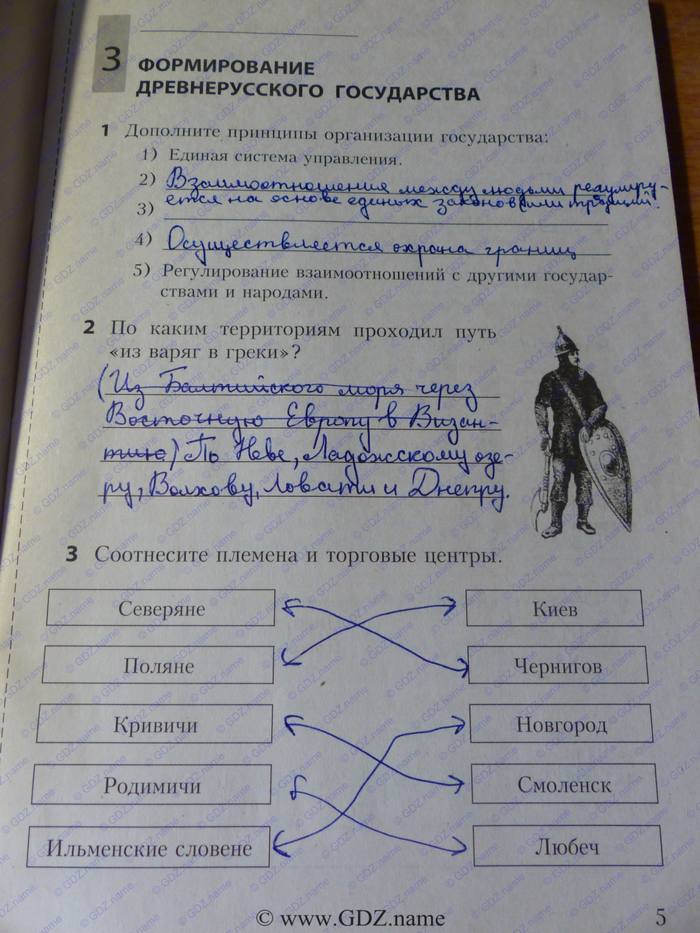 3 ФОРМИРОВАНИЕ
ДРЕВНЕРУССКОГО ГОСУДАРСТВА
1 Дополните принципы организации государства:
1) Единая система управления.
2) Взаимоотношения между людьми регулиру-
ется на основе единых законов или традиций.
3)
4) Осуществляется охрана границ
5) Регулирование взаимоотношений с другими государ-
ствами и народами.
2 По каким территориям проходил путь
«из варяг в греки»?
(Из Балтийского моря через
Восточную Европу в Визан-
тию) По Неве, Ладожскому озе-
ру, Волхову, Ловати и Днепру.
3 Соотнесите племена и торговые центры.
Северяне Киев
Поляне Чернигов
Кривичи Новгород
Родимичи Смоленск
Ильменские словене Любеч
© www.GDZ.name 5